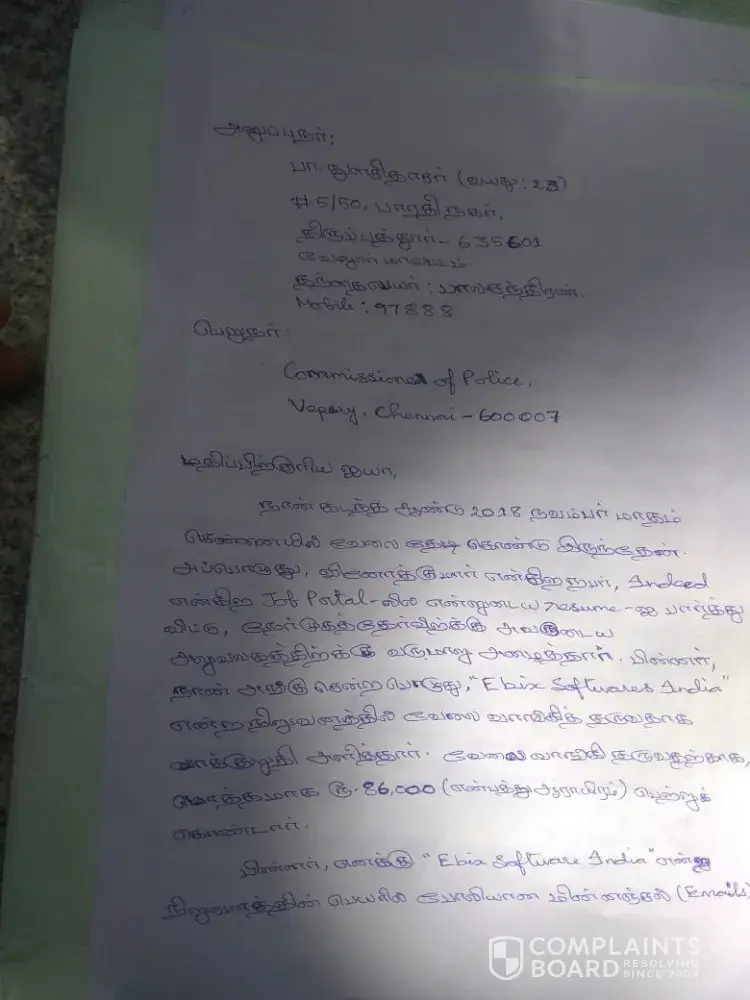 அனுப்புநர்:
பா. துளசிதாசன் (வயது : 23)
# 5/50, பாரதி நகர்,
திருப்பத்தூர் - 635601
வேலூர் மாவட்டம்
தந்தைபெயர் : பாலசந்திரன்.
Mobile : 97888
பெறுநர் :
Commissioner of Police,
Vepery, Chennai - 600007
மதிப்பிற்குரிய ஐயா,
நான் கடந்த ஆண்டு 2018 நவம்பர் மாதம்
சென்னையில் வேலை தேடி கொண்டு இருந்தேன்.
அப்பொழுது, வினோத்குமார் என்கிற நபர், Indeed
என்கிற Job Portal-லில் என்னுடைய resume-ஐ பார்த்து
விட்டு, நேர்முகத்தேர்விற்க்கு அவருடைய
அலுவலகத்திற்க்கு வருமாறு அழைத்தார். பின்னர்,
நான் அங்கு சென்ற பொழுது, "Ebix Softwares India"
என்ற நிறுவனத்தில் வேலை வாங்கித் தருவதாக
வாக்குறுதி அளித்தார். வேலை வாங்கி தருவதற்காக,
மொத்தமாக ரூ. 86,000 (எண்பத்து ஆராயிரம்) பெற்றுக்
கொண்டார்.
பின்னர், எனக்கு "Ebix Software India" என்ற
நிறுவனத்தின் பெயரில் போலியான மின்னஞ்சல் (Emails)
COMPLAINTS
BOARD RESOLVING SINCE 2004